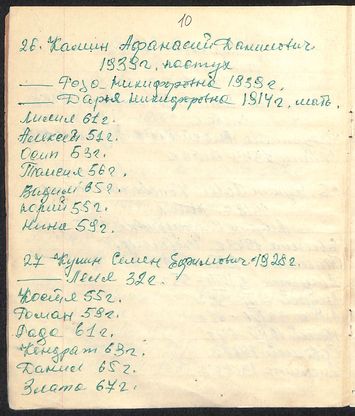 10
26. Калин Афанасий Данилович
1939г. пастух
—— Роза Никифоровна 1939г.
—— Дарья Никифоровна 1914г. мать.
Лилия 61г.
Алексей 51г.
Осип 53г.
Таисия 56г.
Вадим 65г.
Юрий 55г.
Нина 59г.
27 Кунин Семен Ефимович 1928г.
—— Леля 32г.
Костя 55г.
Роман 58г.
Рада 61г.
Кондрат 63г.
Данил 65г.
Злата 67г.